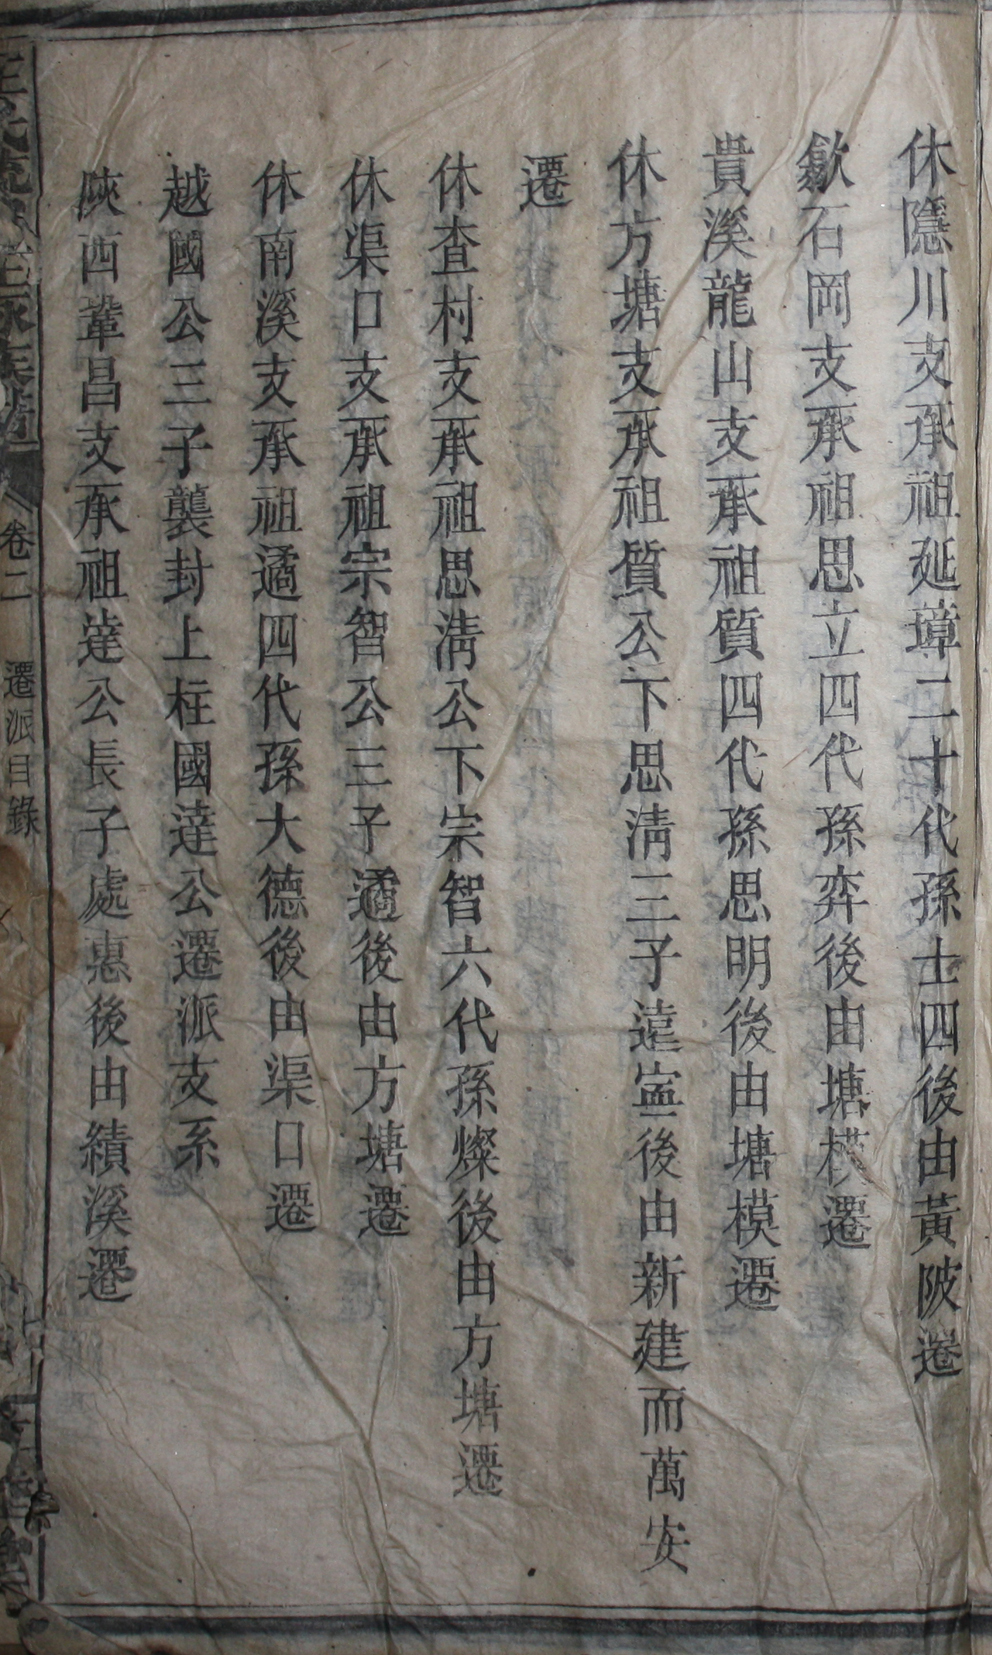 休隱川支承祖延璋二十代孫士四後由黃陂遷
歙石岡支承祖思立四代孫弈後由塘模遷
貴溪龍山支承祖質四代孫思明後由塘模遷
休方塘支承祖質公下思清三子遠寍後由新建而萬安
遷
休查村支承祖思清公下宗智六代孫燦後由方塘遷
休渠口支承祖宗智公三子遹後由方塘遷
休南溪支承祖遹四代孫大德後由渠口遷
越國公三子襲封上柱國達公遷派支系
陝西鞏昌支承祖達公長子處惠後由績溪遷
卷二 遷派目錄